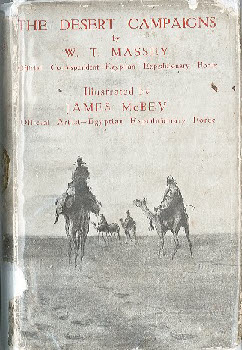 THE DESERT CAMPAIGNS
by
W. T. MASSEY
Official Correspondent Egyptian Expeditionary Force
Illustrated by
JAMES McBEY
Official Artist—Egyptian Expeditionary Force